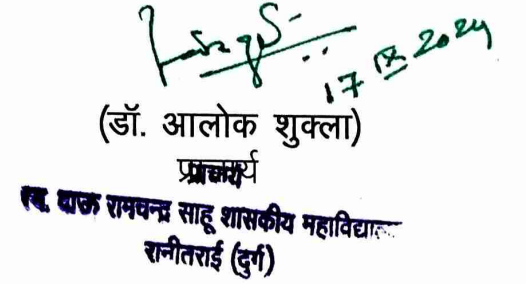 17 IX 2024
(डॉ. आलोक शुक्ला)
प्राचार्य
स्व. दाऊ रामचन्द्र साहू शासकीय महाविद्यालय
रानीतराई (दुर्ग)